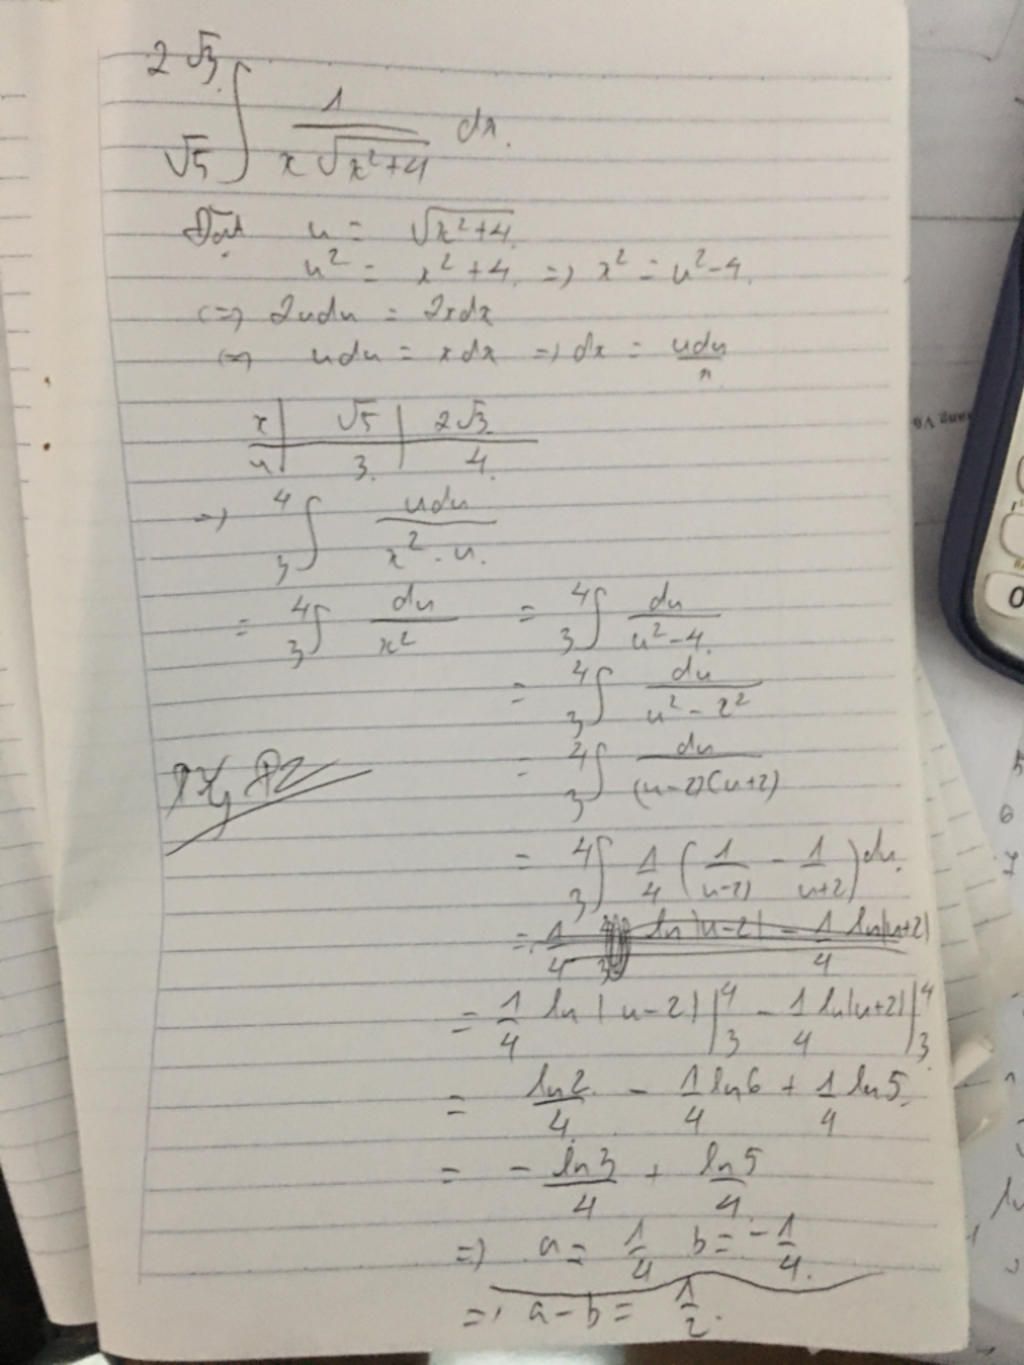 2√3 ∫ √5 1/(x√(x²+4)) dx.
Đặt u = √(x²+4)
u² = x²+4 => x² = u²-4
<=> 2udu = 2xdx
<=> udu = xdx => dx = udu/x
x | √5 | 2√3
u | 3 | 4
=> 4 ∫ 3 udu/(x².u)
= 4 ∫ 3 du/x² = 4 ∫ 3 du/(u²-4)
= 4 ∫ 3 du/(u²-2²)
= 4 ∫ 3 du/((u-2)(u+2))
= 4 ∫ 3 1/4 (1/(u-2) - 1/(u+2)) du
= 1/4 ln|u-2| - 1/4 ln|u+2|
= 1/4 ln|u-2| |⁴₃ - 1/4 ln|u+2| |⁴₃
= ln2/4 - 1/4 ln6 + 1/4 ln5
= - ln3/4 + ln5/4
=> a = 1/4 b = -1/4
=> a-b = 1/2.
0